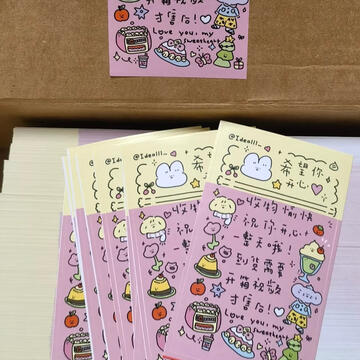 开箱视频
才售后!
Love you, my
sweetheart
@Ideal
@Idealll_
@Idealll_
希望你
开心
收物愉快
祝你开心
一整天哦!
到货需要
开箱视频
才售后!
Love you, my
sweetheart